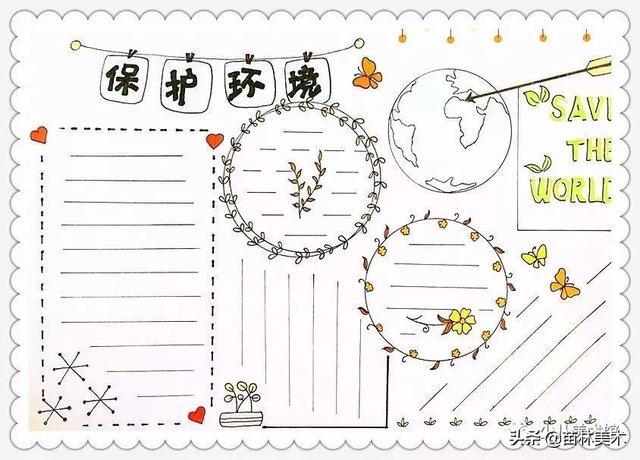 保护环境
SAVE
THE
WORLD
头条@苗林美术